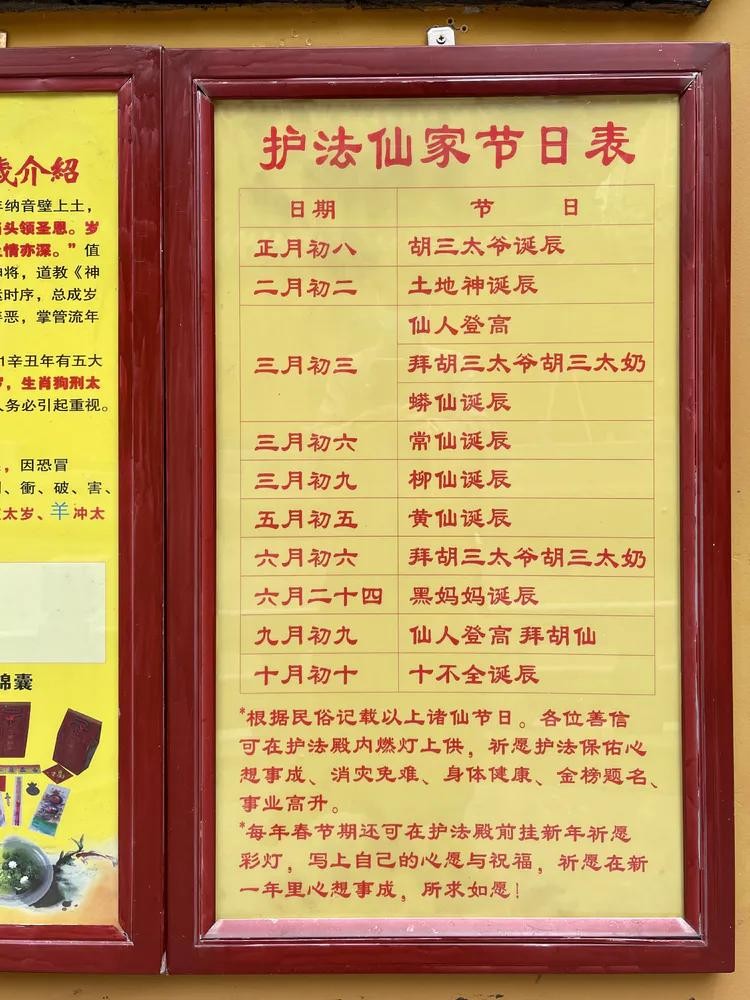 歲介紹
年纳音壁上土，
头领圣恩。岁
情亦深。”值
神将，道教《神
时序，总成岁
恶，掌管流年
1辛丑年有五大
，生肖狗刑太
人务必引起重视。
，因恐冒
、衝、破、害、
太岁、羊冲太
锦囊
护法仙家节日表
日期 节 日
正月初八 胡三太爷诞辰
二月初二 土地神诞辰
三月初三 仙人登高
拜胡三太爷胡三太奶
蟒仙诞辰
三月初六 常仙诞辰
三月初九 柳仙诞辰
五月初五 黄仙诞辰
六月初六 拜胡三太爷胡三太奶
六月二十四 黑妈妈诞辰
九月初九 仙人登高 拜胡仙
十月初十 十不全诞辰
*根据民俗记载以上诸仙节日。各位善信
可在护法殿内燃灯上供，祈愿护法保佑心
想事成、消灾免难、身体健康、金榜题名、
事业高升。
*每年春节期还可在护法殿前挂新年祈愿
彩灯，写上自己的心愿与祝福，祈愿在新
一年里心想事成，所求如愿！